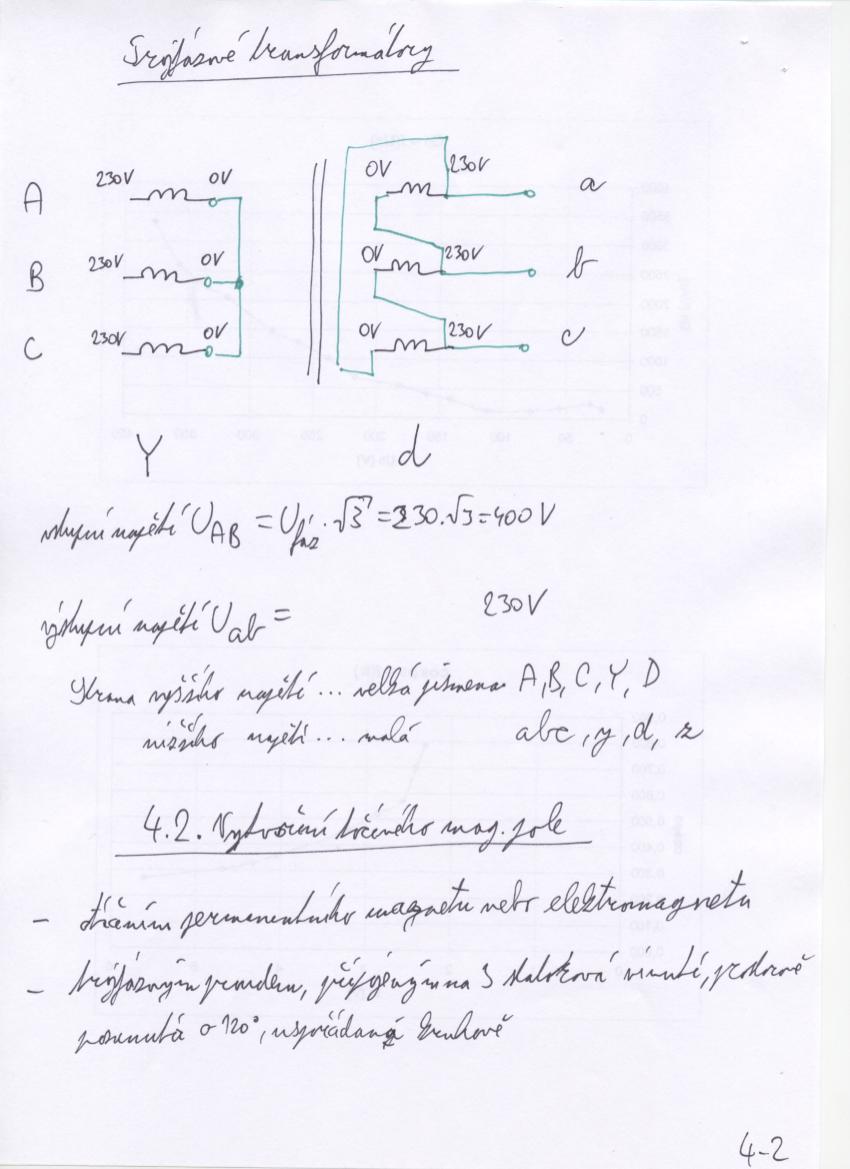 Trojfázové transformátory
A 230V 0V 0V 230V a
B 230V 0V 0V 230V b
C 230V 0V 0V 230V c
Y d
vstupní napětí U_AB = U_fáz · √3 = 230.√3 = 400 V
výstupní napětí U_ab = 230V
strana vyššího napětí ... velká písmena A, B, C, Y, D
nižšího napětí ... malá abc, y, d, z
4.2. Vytvoření točivého mag. pole
- otáčením permanentního magnetu nebo elektromagnetu
- trojfázovým proudem, připojeným na 3 statorová vinutí, prostorově
posunutá o 120°, uspořádaná kruhově
4-2